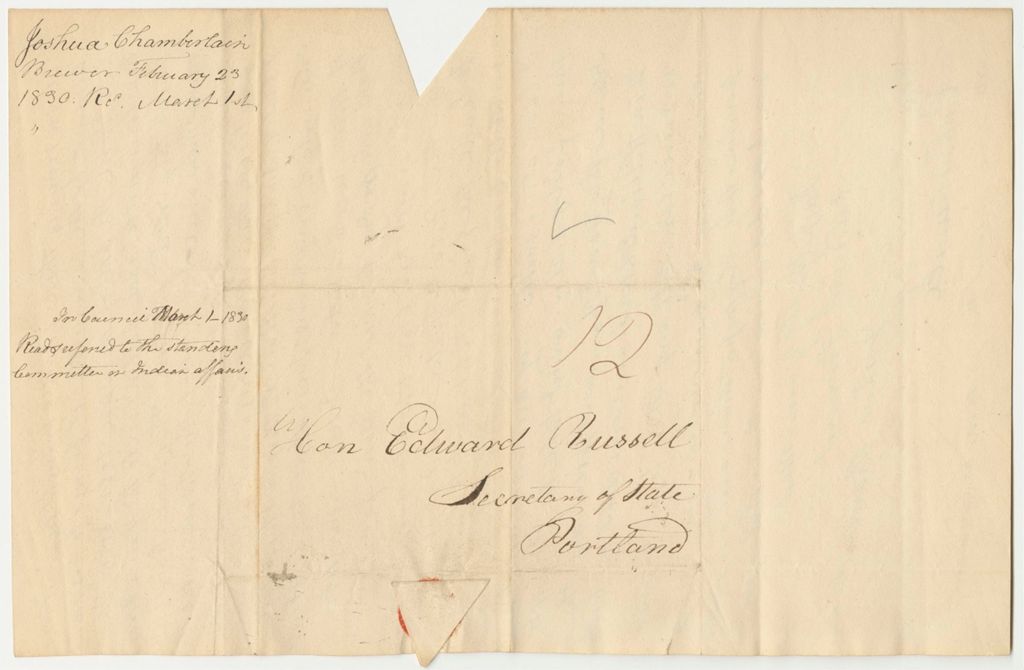 Joshua Chamberlain
Brewer February 23
1830. Rc. March 1st,
"
In Council March 1- 1830
Read & refered to the standing
Committee on Indian affairs.
12
Hon Edward Russell
Secretary of State
Portland